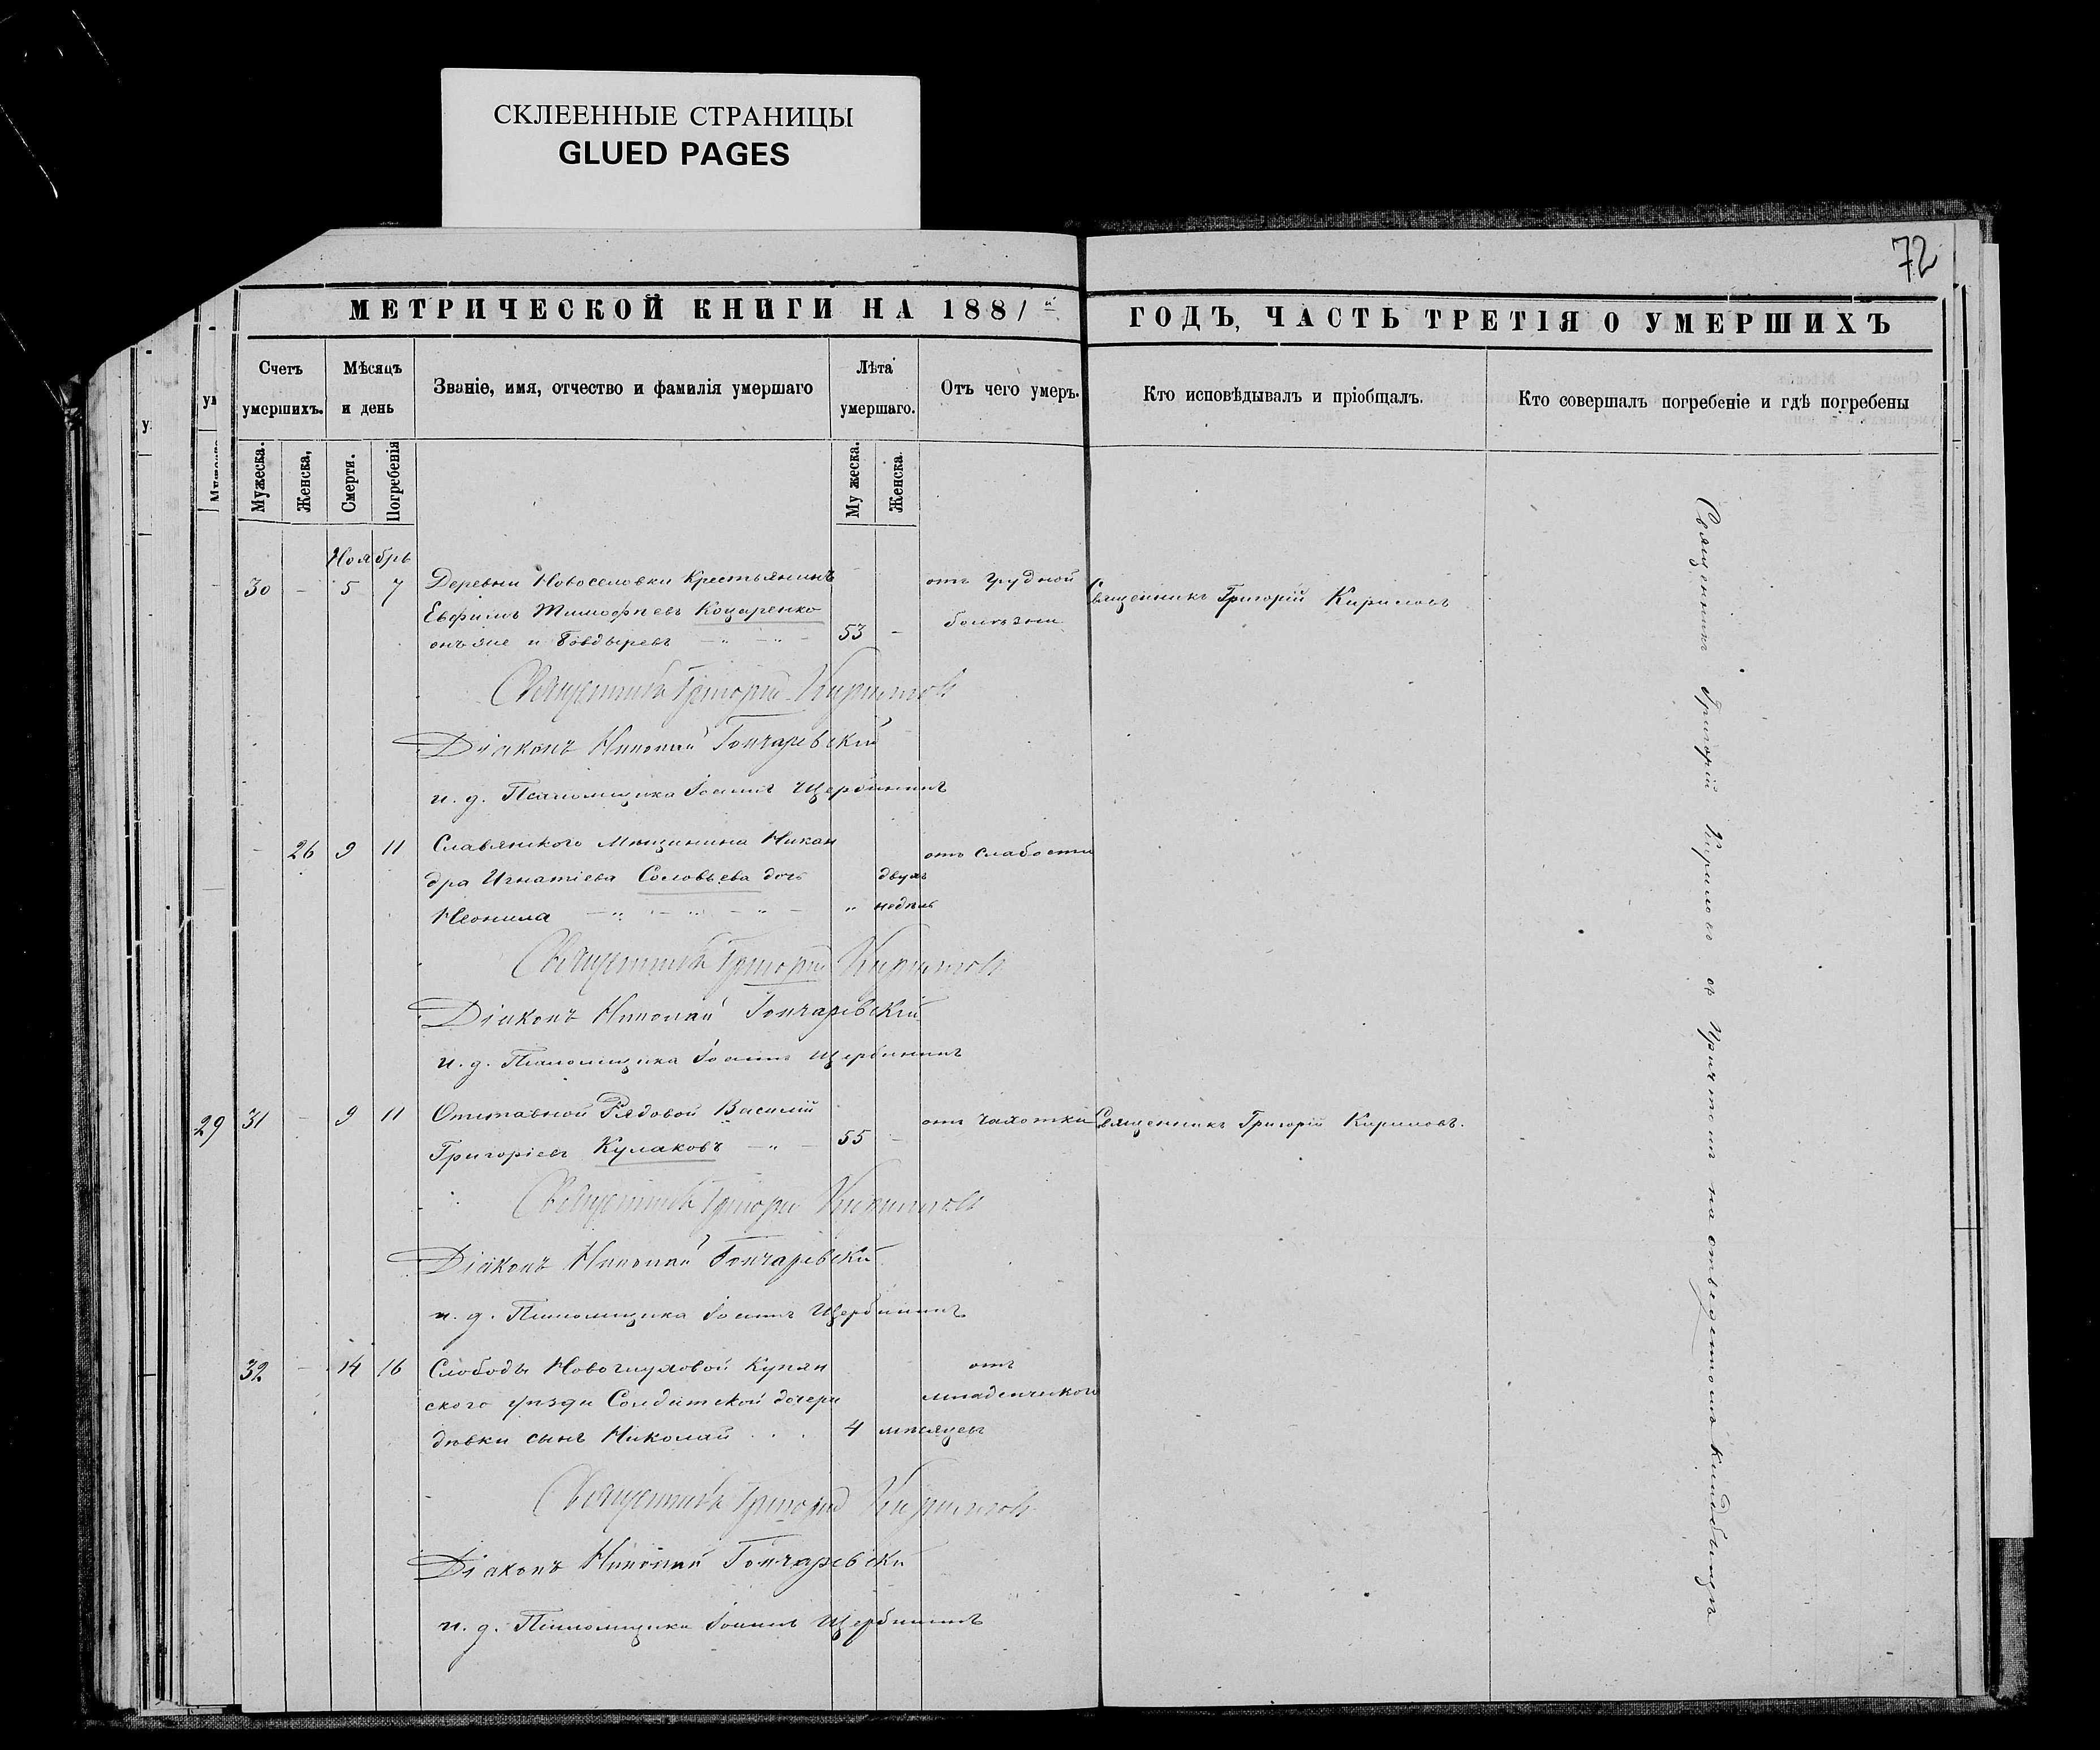 СКЛЕЕННЫЕ СТРАНИЦЫ
GLUED PAGES
72
МЕТРИЧЕСКОЙ КНИГИ НА 1881й
ГОДЪ, ЧАСТЬ ТРЕТІЯ О УМЕРШИХЪ
Счетъ умершихъ.
Мѣсяцъ и день
Званіе, имя, отчество и фамилія умершаго
Лѣта умершаго.
Отъ чего умеръ.
Кто исповѣдывалъ и пріобщалъ.
Кто совершалъ погребеніе и гдѣ погребены
Мужеска.
Женска,
Смерти.
Погребенія
Му жеска.
Женска.
Ноябрь
30 - 5 7 Деревни Новоселовки Крестьянинъ отъ грудной Священникъ Григорій Кириловъ
Евфимъ Тимофѣевъ Коцаренко болѣзни
онъ же и Бовдыревъ 53 -
Священникъ Григорій Кириловъ
Діаконъ Николай Гончаревскій
и. д. Псаломщика Іоаннъ Щербининъ
- 26 9 11 Славянского Мѣщанина Никан отъ слабости
дра Игнатіева Соловьева дочь двухъ
Неонила " недѣль
Священникъ Григорій Кириловъ
Діаконъ Николай Гончаревскій
и. д. Псаломщика Іоаннъ Щербининъ
29 31 - 9 11 Отставной Рядовой Василій отъ чахотки Священникъ Григорій Кириловъ.
Григоріевъ Кулаковъ 55 -
Священникъ Григорій Кириловъ
Діаконъ Николай Гончаревскій
и. д. Псаломщика Іоаннъ Щербининъ
32 - 14 16 Слободы Новоглуховой Купян отъ
ского уѣзда Солдатской дочери младенческого
дѣвки сынъ Николай . . . 4 мѣсяцевъ
Священникъ Григорій Кириловъ
Діаконъ Николай Гончаревскій
и. д. Псаломщика Іоаннъ Щербининъ
Священникъ Григорій Кириловъ съ Причтомъ на отведенномъ кладбищѣ